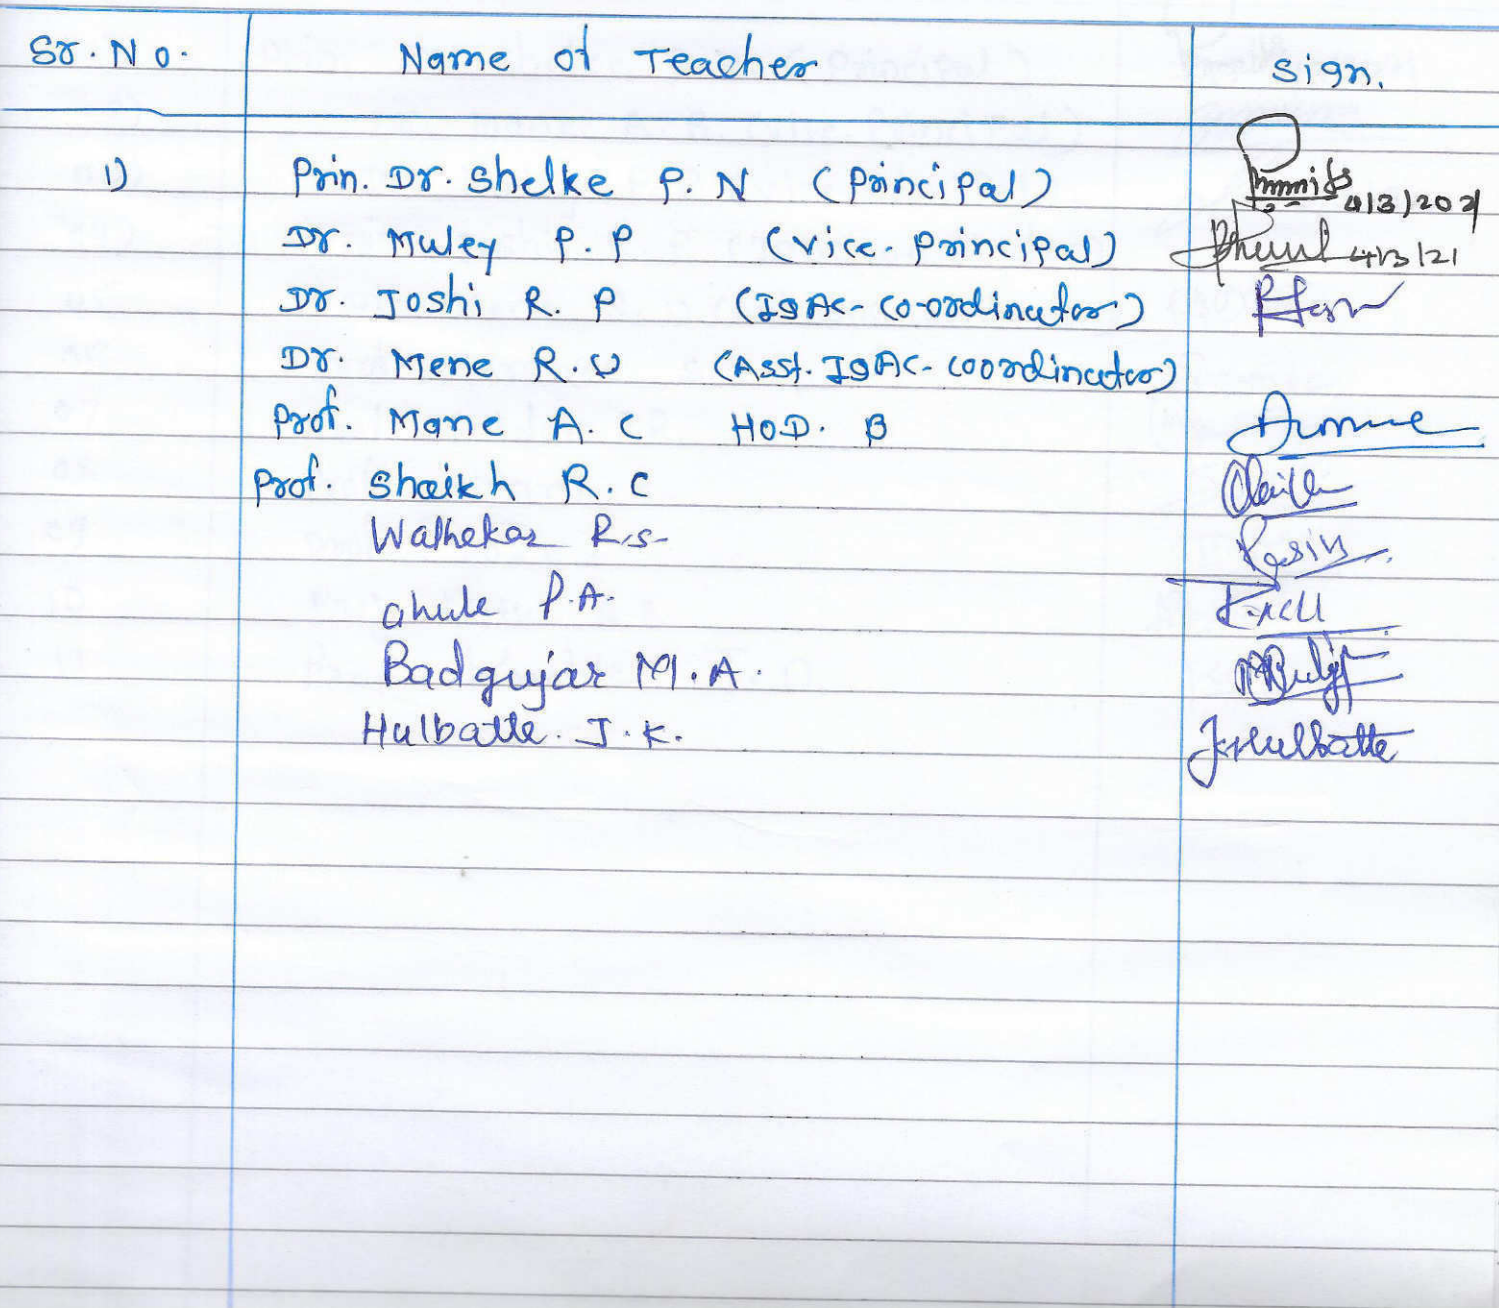 Sr. No. Name of Teacher Sign.
1) Prin. Dr. Shelke P. N (Principal) 4/3/2021
Dr. Muley P. P (Vice-Principal) 4/3/21
Dr. Joshi R. P (IQAC-Co-ordinator)
Dr. Mene R. U (Asst. IQAC-Coordinator)
Prof. Mane A. C HOD. B
Prof. Shaikh R. C
Walhekar R.S.
P.A.
Badgujar M.A.
Hulbatte. J.K. JKHulbatte